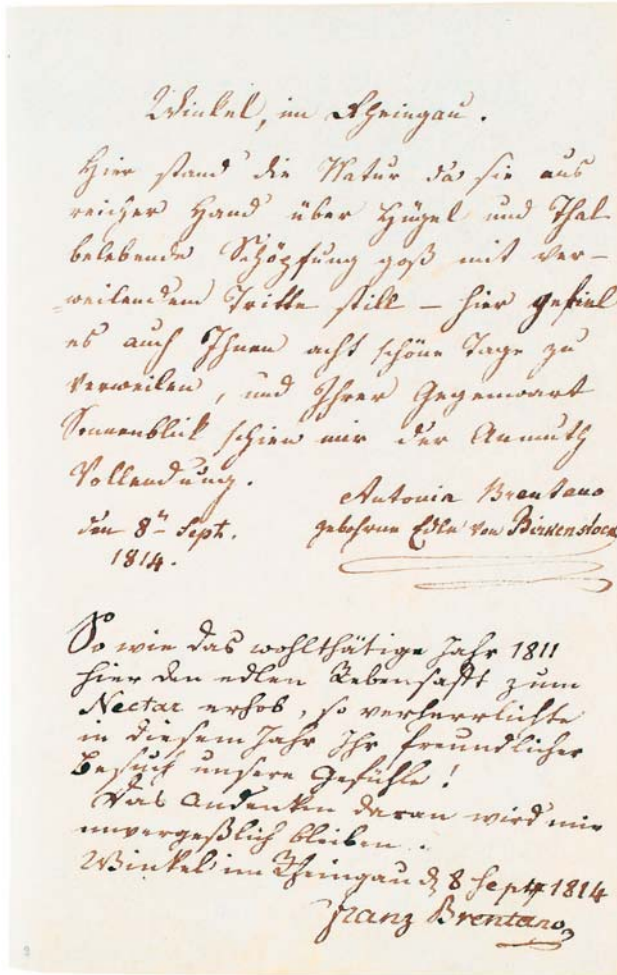 Winkel, im Rheingau.
Hier stand die Natur da sie aus
reicher Hand über Hügel und Thal
belebende Schöpfung goß mit ver-
=weilendem Tritte still – hier gefiel
es auch Ihnen acht schöne Tage zu
verweilen, und Ihrer Gegenwart
Sonnenblick schien mir der Anmuth
Vollendung.
Antonia Brentano
den 8n Sept. gebohrne Edle von Birkenstock
1814.
So wie das wohlthätige Jahr 1811
hier den edlen Rebensaft zum
Nectar erhob, so verherrlichte
in diesem Jahr Ihr freundlicher
Besuch unsere Gefühle!
Das Andenken daran wird mir
unvergeßlich bleiben.
Winkel im Rheingau d 8 Sept 1814
Franz Brentano